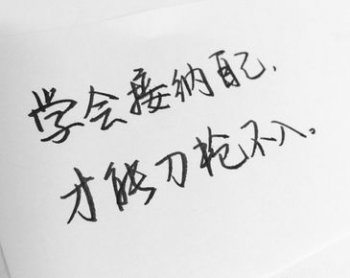 学会接纳自己.
才能刀枪不入。